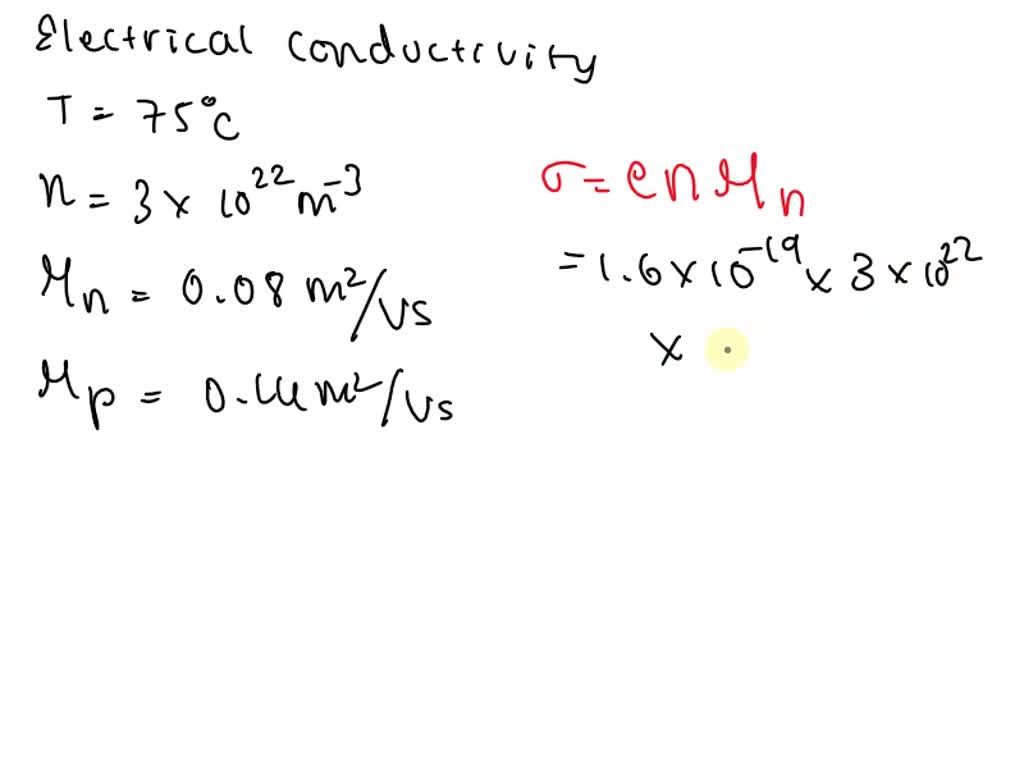 Electrical conductivity
T = 75°C
n = 3 × 10²² m⁻³
μn = 0.08 m²/Vs
μp = m²/Vs
σ = e n μn
= 1.6 × 10⁻¹⁹ × 3 × 10²²
×